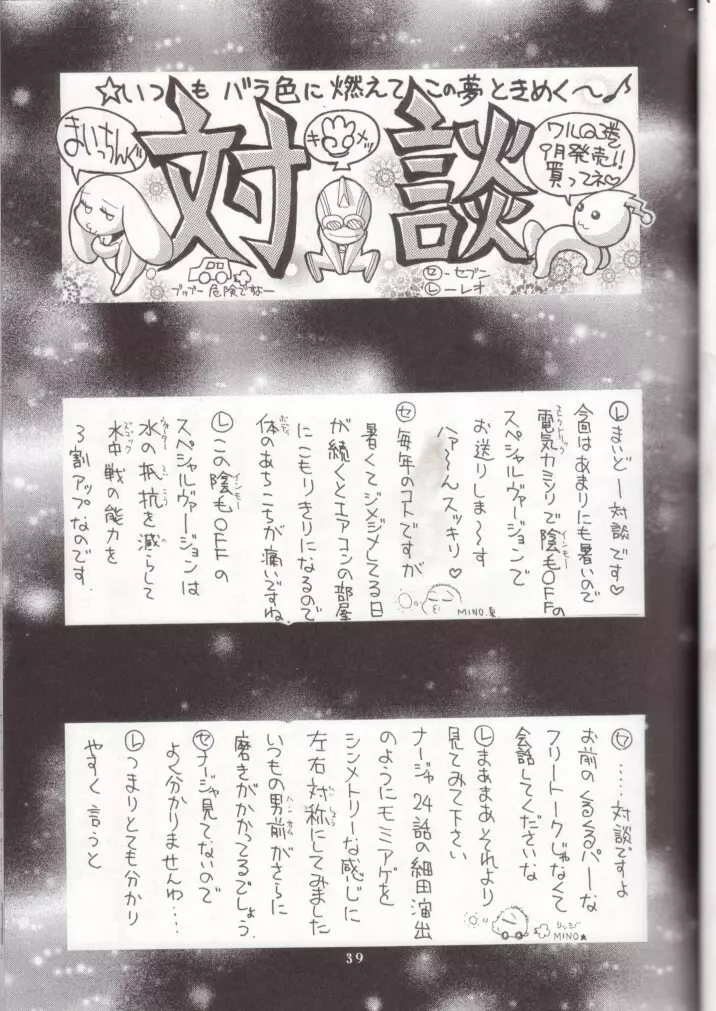 ☆いつもバラ色に燃えてこの夢ときめく〜♪
対談
まいっちんぐ
キメッ
ワルQ3巻
9月発売!!
買ってネ♡
ブッブー危険でなー
セ-セブー
レ-レオ
レ まいどー対談です♡
今回はあまりにも暑いので
電気カミソリで陰毛OFFの
スペシャルヴァージョンで
お送りしま〜〜す
ハァ〜〜んスッキリ♡
セ 毎年のコトですが
暑くてジメジメしてる日
が続くとエアコンの部屋
にこもりきりになるので
体のあちこちが痛いですね
レ この陰毛OFFの
スペシャルヴァージョンは
水の抵抗を減らして
水中戦の能力を
3割アップなのです
MINO
セ ……対談ですよ
お前のくるくるパーな
フリートークじゃなくて
会話してくださいな
レ まあまあそれより
見てみて下さい
ナージャ24話の細田演出
のようにモミアゲを
シンメトリーな感じに
左右対称にしてみました
いつもの男前がさらに
磨きがかかってるでしょう
セ ナージャ見てないので
よく分かりませんわ…
レ つまりとても分かり
やすく言うと
MINO★
39